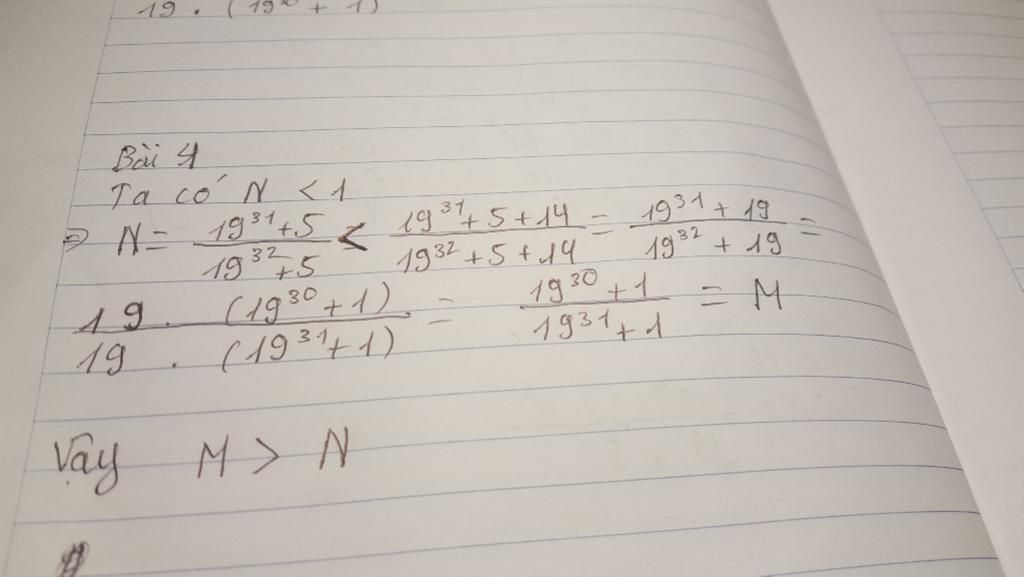 19 . (19³⁰ + 1)
Bài 4
Ta có N < 1
⇒ N = (19³¹ + 5)/(19³² + 5) < (19³¹ + 5 + 14)/(19³² + 5 + 14) = (19³¹ + 19)/(19³² + 19) =
(19 . (19³⁰ + 1))/(19 . (19³¹ + 1)) = (19³⁰ + 1)/(19³¹ + 1) = M
Vậy M > N